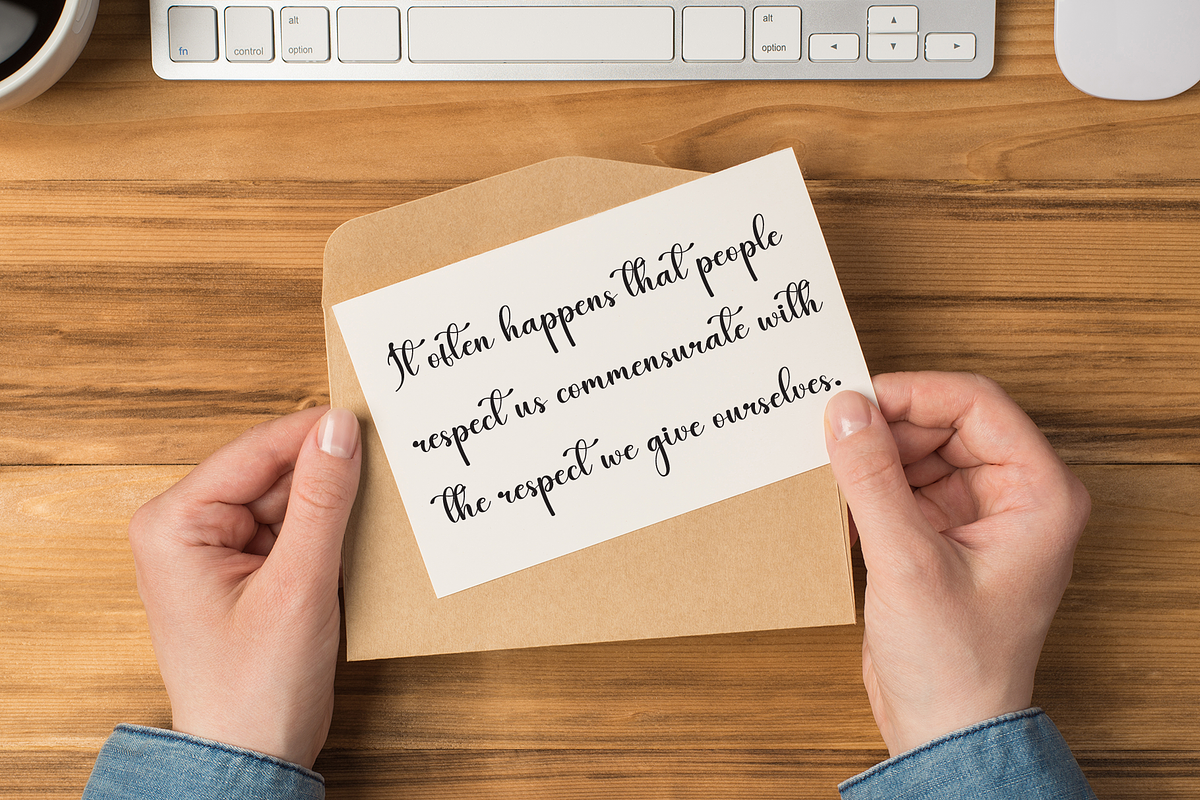 fn
control
alt
option
alt
option
It often happens that people
respect us commensurate with
the respect we give ourselves.